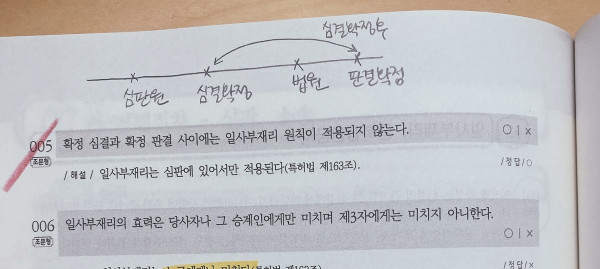 심결확정후
심판원 심결확정 법원 판결확정
005 확정 심결과 확정 판결 사이에는 일사부재리 원칙이 적용되지 않는다. O | X
조문형
/ 해설 / 일사부재리는 심판에 있어서만 적용된다(특허법 제163조). / 정답 / ○
006 일사부재리의 효력은 당사자나 그 승계인에게만 미치며 제3자에게는 미치지 아니한다.
조문형
O | X
/ 정답 / ×